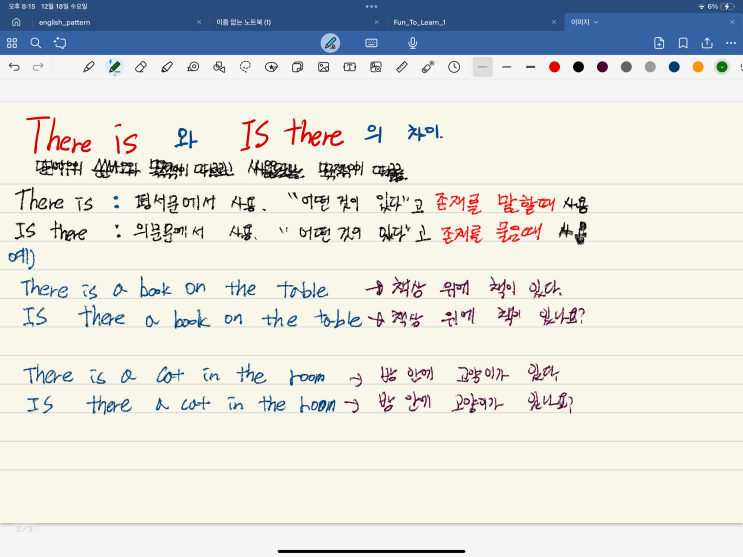 오후 8:15 12월 18일 수요일 6%
english_pattern 이름 없는 노트북 (1) Fun_To_Learn_1 이미지
There is 와 IS there 의 차이.
There is : 평서문에서 사용. "어떤 것이 있다"고 존재를 말할때 사용
IS there : 의문문에서 사용. "어떤 것이 있다"고 존재를 물을때
예)
There is a book on the table → 책상 위에 책이 있다.
IS there a book on the table → 책상 위에 책이 있나요?
There is a cat in the room → 방 안에 고양이가 있다.
IS there a cat in the room → 방 안에 고양이가 있나요?
2 / 3